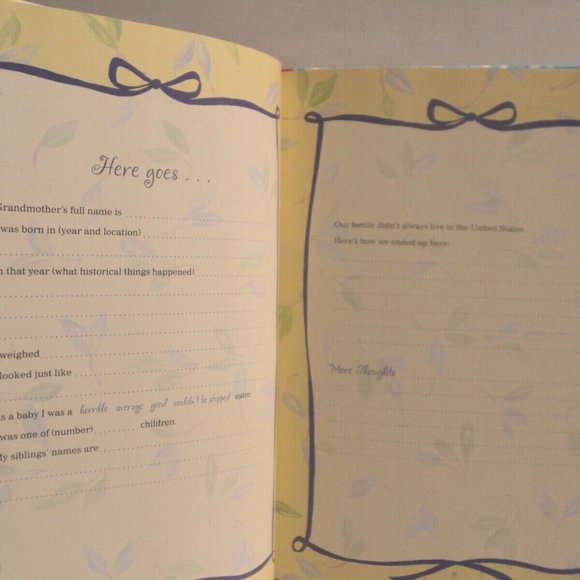 Here goes . . .
Grandmother's full name is
was born in (year and location)
that year (what historical things happened)
weighed
looked just like
as a baby I was a horrible average good eater.
was one of (number) children.
My siblings' names are
Our family didn't always live in the United States.
Here's how we ended up here.
More Thoughts